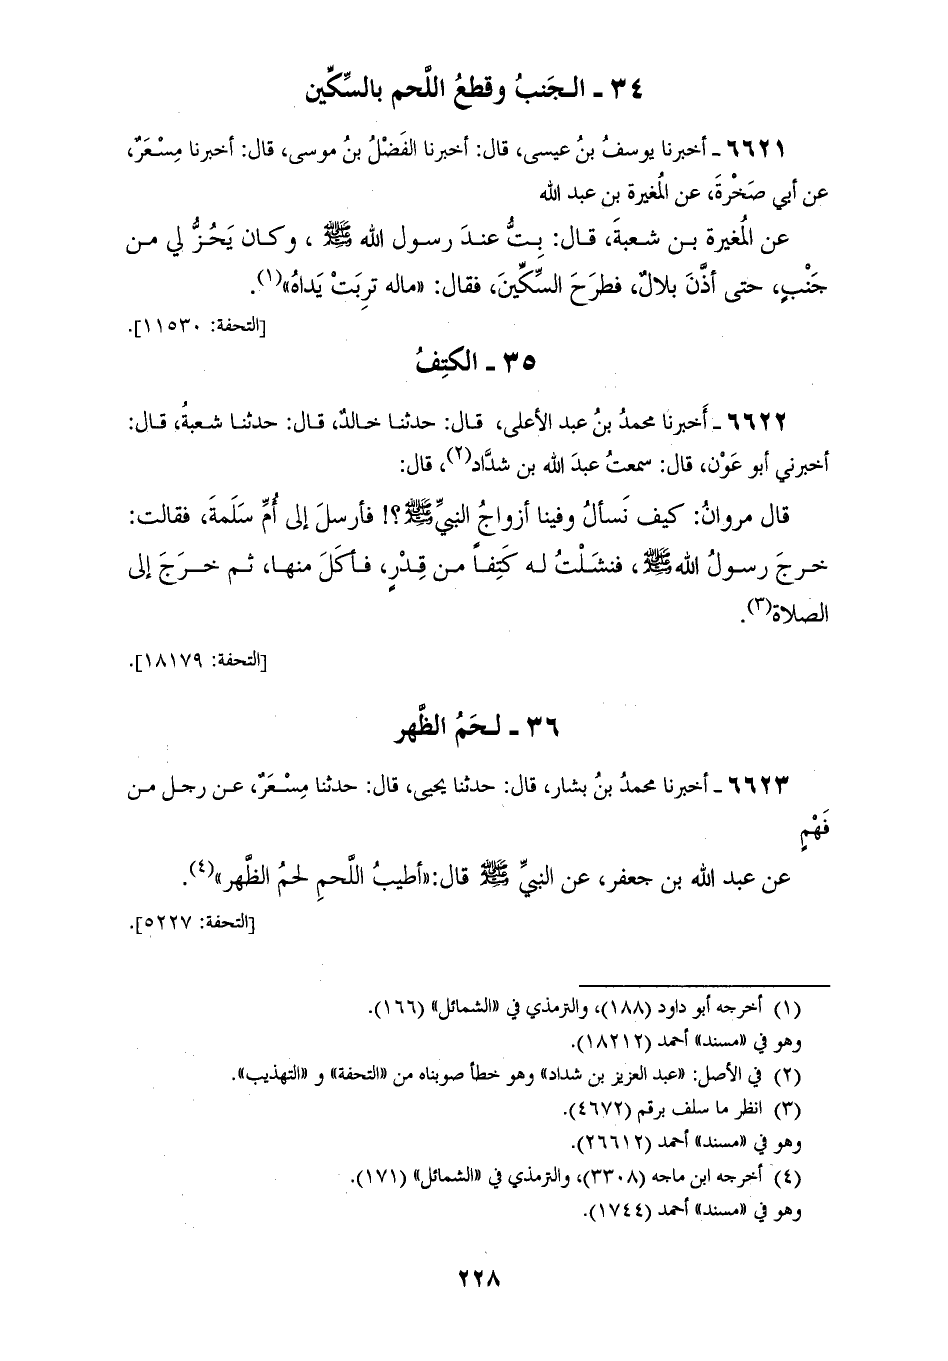 ٣٤ ـ الـجَنبُ وقطعُ اللَّحم بالسِّكِّين
٦٦٢١ ـ أخبرنا يوسفُ بنُ عيسى، قال: أخبرنا الفَضْلُ بنُ موسى، قال: أخبرنا مِسْعَرٌ،
عن أبي صَخْرةَ، عن المُغيرة بن عبد الله
عن المُغيرة بـن شـعبةَ، قـال: بِـتُّ عنـدَ رسـول الله ﷺ ، وكـان يَحُـزُّ لي مـن
جَنْبٍ، حتى أذَّنَ بلالٌ، فطرَحَ السِّكِّينَ، فقال: «ماله تربَتْ يَداهُ»(١).
[التحفة: ١١٥٣٠].
٣٥ ـ الكتِفُ
٦٦٢٢ ـ أَخبرنا محمدُ بنُ عبد الأعلى، قـال: حدثنـا خـالدٌ، قـال: حدثنـا شـعبةُ، قـال:
أخبرني أبو عَوْن، قال: سمعتُ عبدَ الله بن شدَّاد(٢)، قال:
قال مروانُ: كيف نَسألُ وفينا أزواجُ النبيِّ ﷺ؟! فأرسلَ إلى أُمِّ سَلَمةَ، فقالت:
خـرجَ رسـولُ الله ﷺ ، فنشَـلْتُ لـه كَتِفـاً مـن قِـدْرٍ، فـأكَلَ منهـا، ثـم خـرَجَ إلى
الصلاة(٣).
[التحفة: ١٨١٧٩].
٣٦ ـ لـحَمُ الظَّهر
٦٦٢٣ ـ أخبرنا محمدُ بنُ بشار، قال: حدثنا يحيى، قال: حدثنا مِسْـعَرٌ، عـن رجـل مـن
فَهْمٍ
عن عبد الله بن جعفر، عن النبيِّ ﷺ قال:«أطيبُ اللَّحمِ لحمُ الظَّهر»(٤).
[التحفة: ٥٢٢٧].
(١) أخرجه أبو داود (١٨٨)، والترمذي في «الشمائل» (١٦٦).
وهو في «مسند» أحمد (١٨٢١٢).
(٢) في الأصل: «عبد العزيز بن شداد» وهو خطأ صوبناه من «التحفة» و «التهذيب».
(٣) انظر ما سلف برقم (٤٦٧٢).
وهو في «مسند» أحمد (٢٦٦١٢).
(٤) أخرجه ابن ماجه (٣٣٠٨)، والترمذي في «الشمائل» (١٧١).
وهو في «مسند» أحمد (١٧٤٤).
٢٢٨